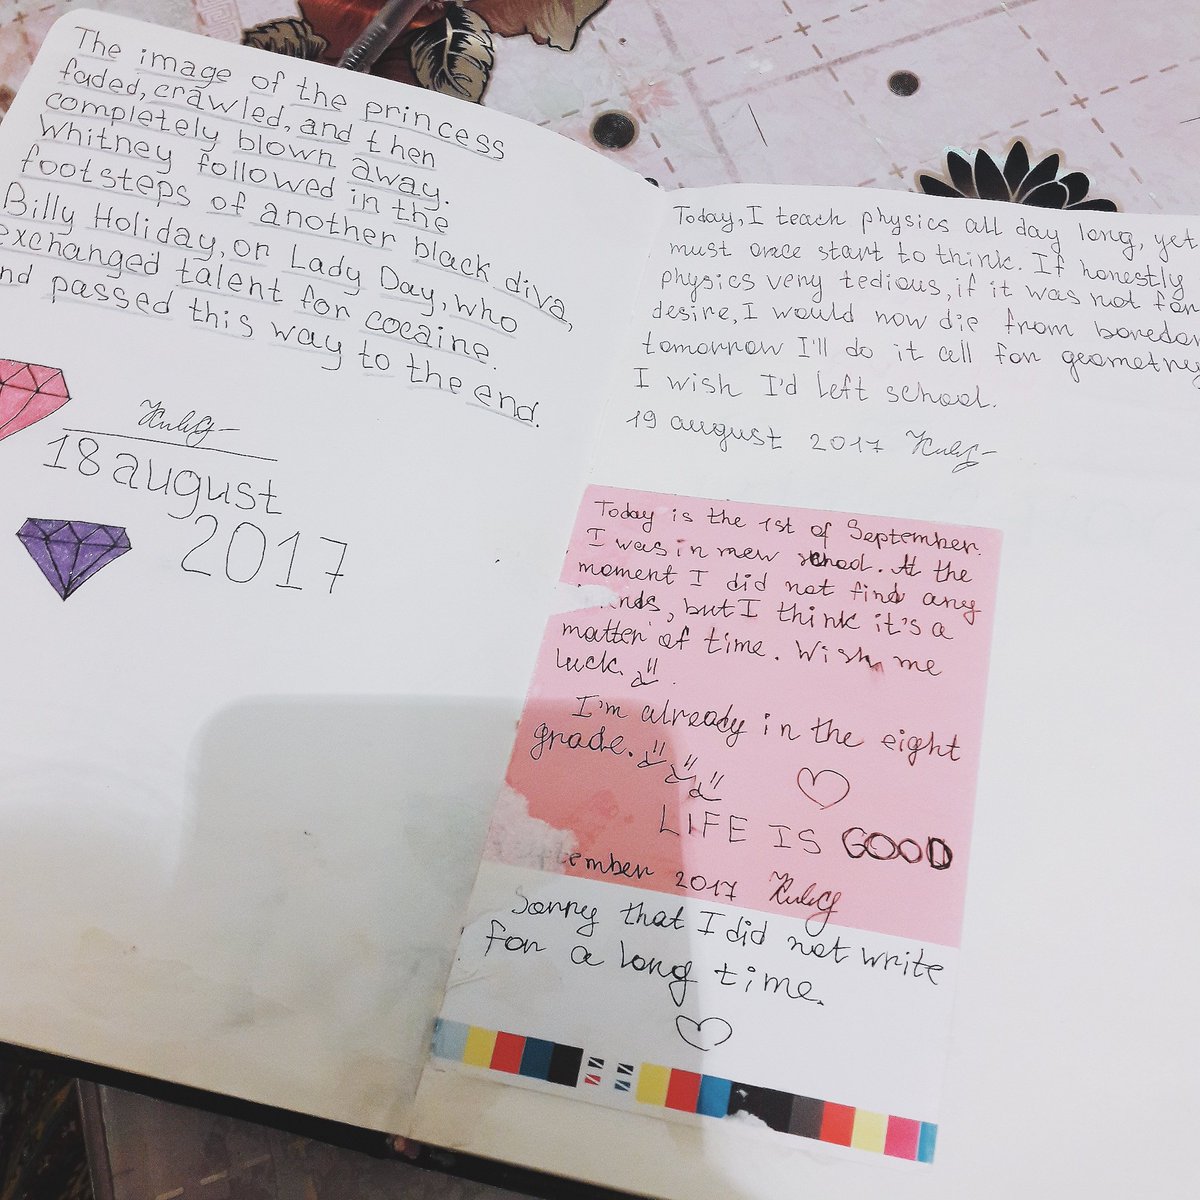 The image of the princess
faded, crawled, and then
completely blown away.
Whitney followed in the
footsteps of another black diva,
Billy Holiday, or Lady Day, who
exchanged talent for cocaine.
nd passed this way to the end.
18 august
2017
Today, I teach physics all day long, yet
must once start to think. If honestly
physics very tedious, if it was not for
desire, I would now die from boredom
tomorrow I'll do it all for geometry
I wish I'd left school.
19 august 2017
Today is the 1st of September.
I was in new school. At the
moment I did not find any
nds, but I think it's a
matter of time. Wish me
luck.
I'm already in the eight
grade.
LIFE IS GOOD
tember 2017
Sorry that I did not write
for a long time.